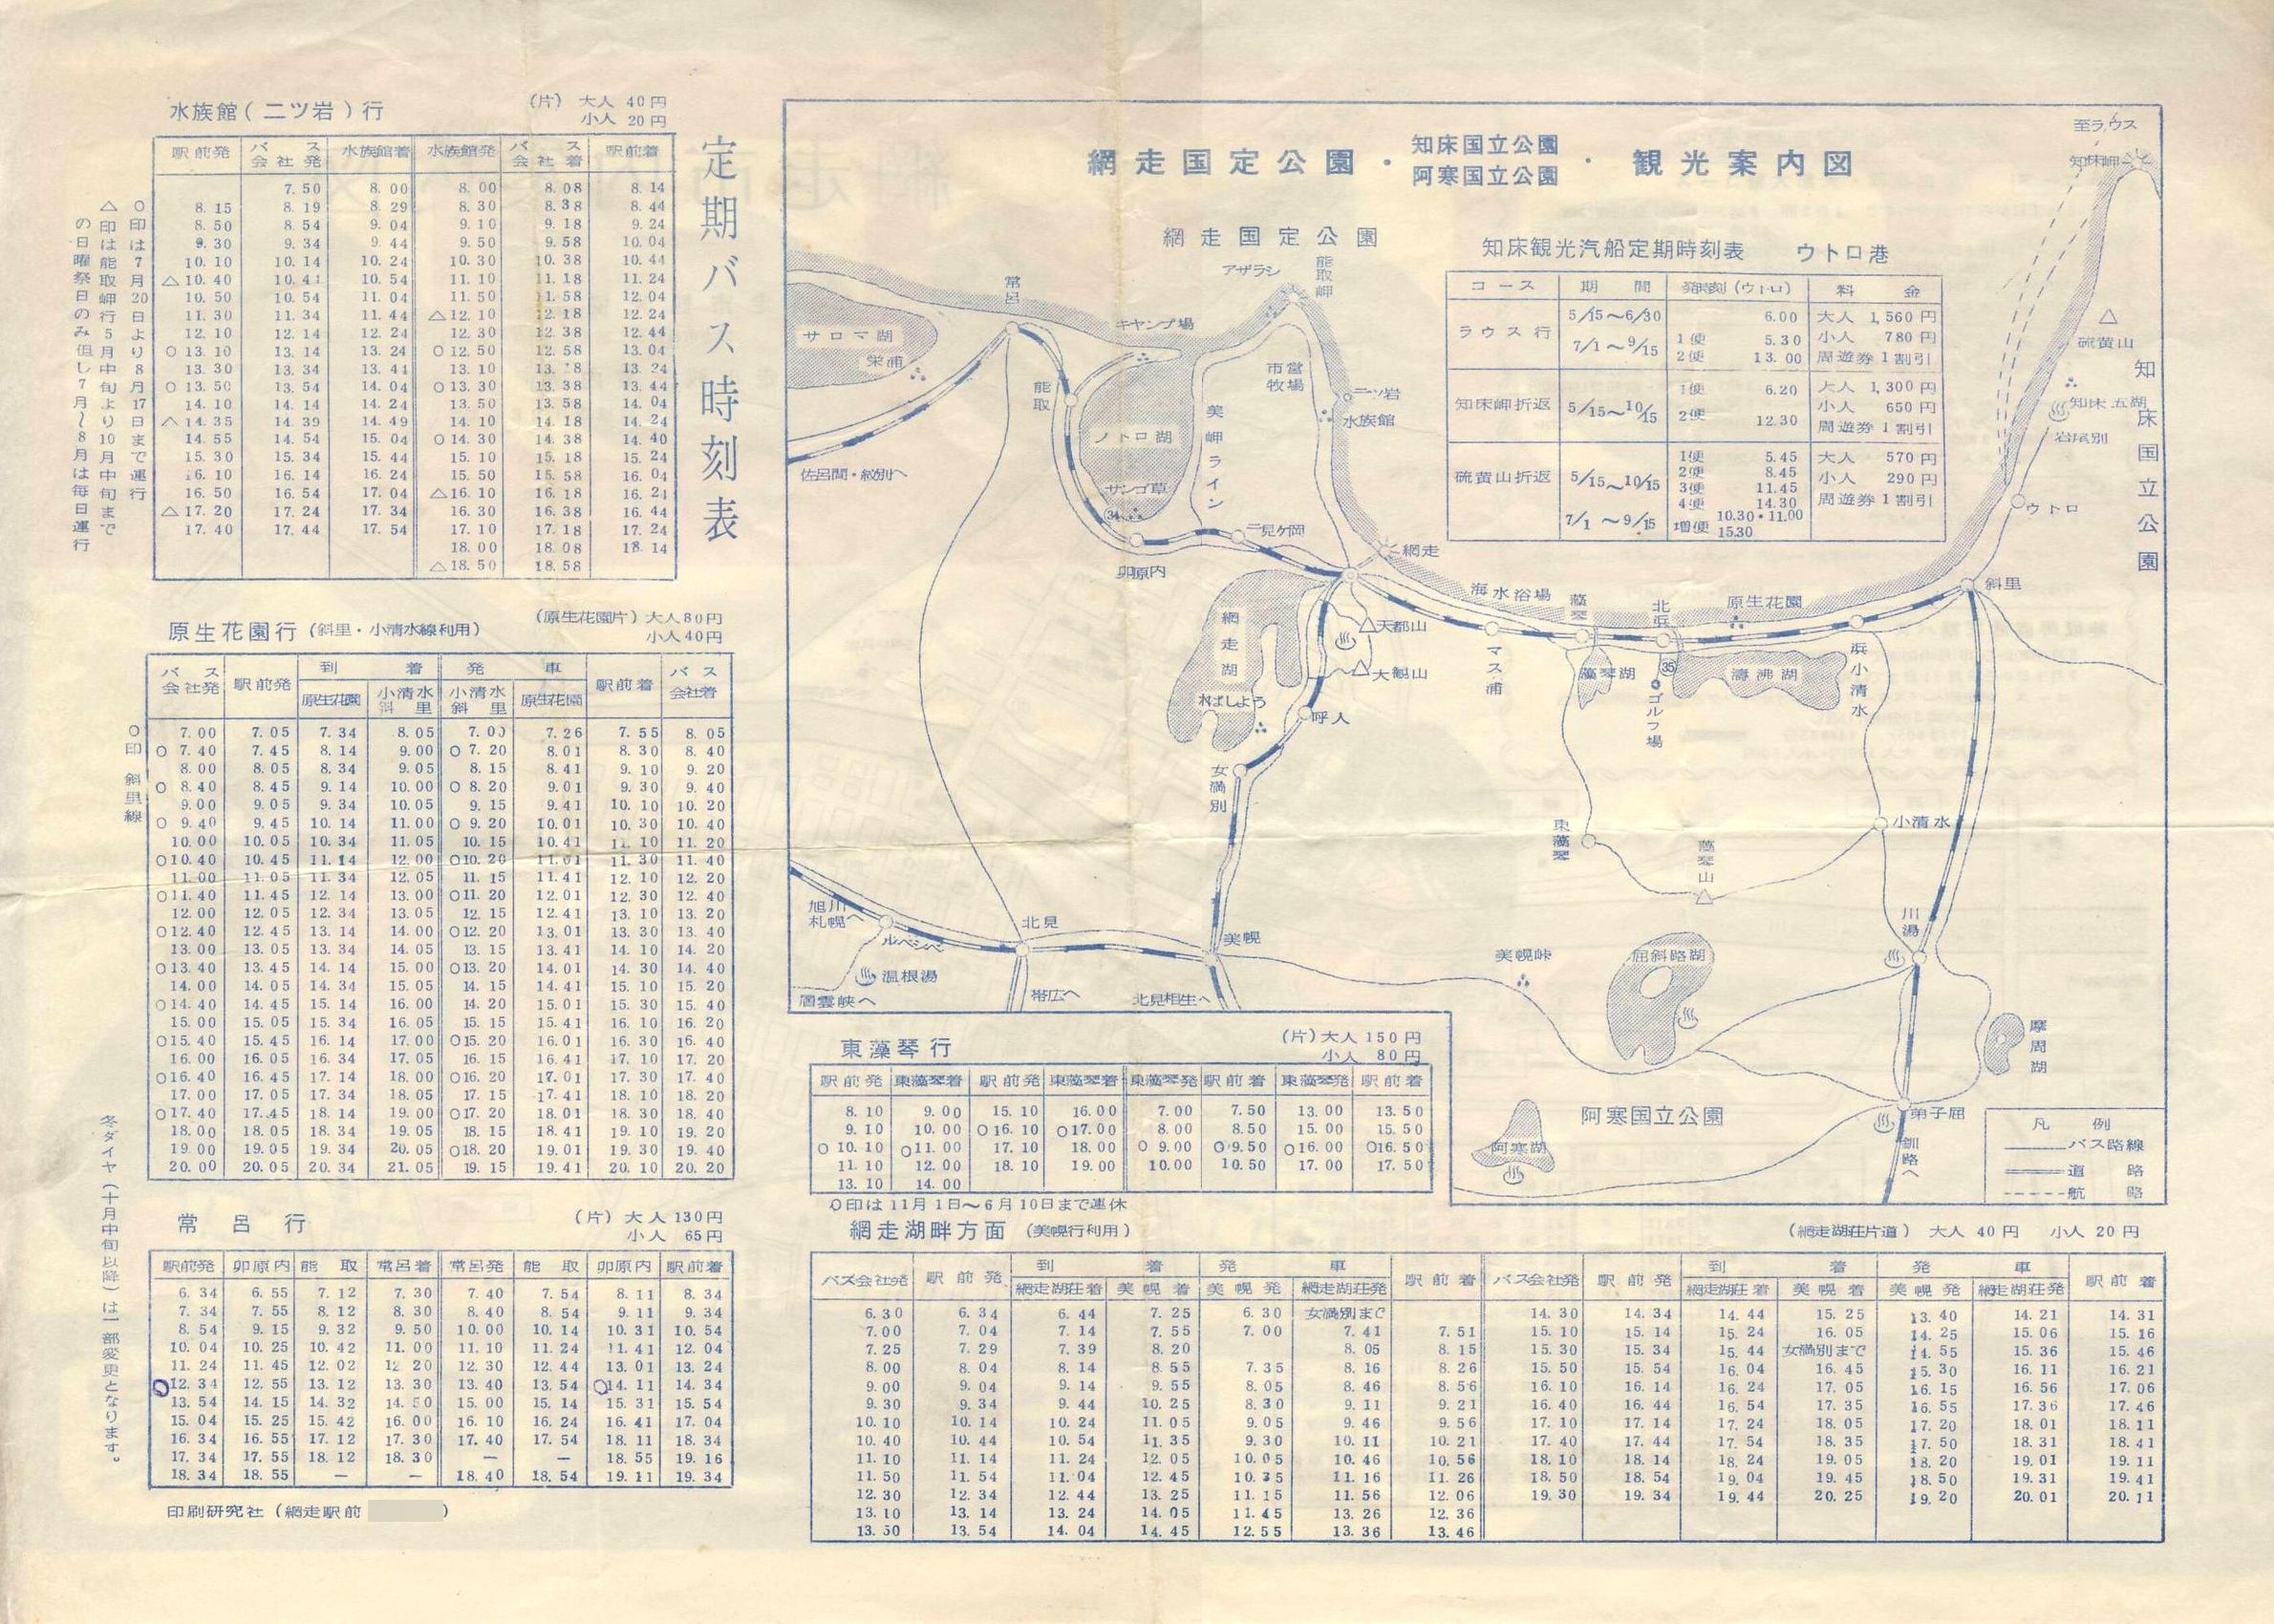 水族館(二ツ岩)行
(片) 大人 40円
小人 20円
駅前発 バス会社発 水族館着 水族館発 バス会社着 駅前着
7.50 8.00 8.00 8.08 8.14
8.15 8.19 8.29 8.30 8.38 8.44
8.50 8.54 9.04 9.10 9.18 9.24
9.30 9.34 9.44 9.50 9.58 10.04
10.10 10.14 10.24 10.30 10.38 10.44
△10.40 10.41 10.54 11.10 11.18 11.24
10.50 10.54 11.04 11.50 11.58 12.04
11.30 11.34 11.44 △12.10 12.18 12.24
12.10 12.14 12.24 12.30 12.38 12.44
○13.10 13.14 13.24 ○12.50 12.58 13.04
13.30 13.34 13.41 13.10 13.18 13.24
○13.50 13.54 14.04 ○13.30 13.38 13.44
14.10 14.14 14.24 13.50 13.58 14.04
△14.35 14.39 14.49 14.10 14.18 14.24
14.55 14.54 15.04 ○14.30 14.38 14.40
15.30 15.34 15.44 15.10 15.18 15.24
16.10 16.14 16.24 15.50 15.58 16.04
16.50 16.54 17.04 △16.10 16.18 16.24
△17.20 17.24 17.34 16.30 16.38 16.44
17.40 17.44 17.54 17.10 17.18 17.24
18.00 18.08 18.14
△18.50 18.58
○印は7月20日より8月17日まで運行
△印は能取岬行5月中旬より10月中旬まで
の日曜祭日のみ但し7月〜8月は毎日運行
定期バス時刻表
原生花園行(斜里・小清水線利用)
(原生花園片)大人80円
小人40円
バス会社発 駅前発 到着 発車 駅前着 バス会社着
原生花園 小清水斜里 小清水斜里 原生花園
7.00 7.05 7.34 8.05 7.00 7.26 7.55 8.05
○7.40 7.45 8.14 9.00 ○7.20 8.01 8.30 8.40
8.00 8.05 8.34 9.05 8.15 8.41 9.10 9.20
○8.40 8.45 9.14 10.00 ○8.20 9.01 9.30 9.40
9.00 9.05 9.34 10.05 9.15 9.41 10.10 10.20
○9.40 9.45 10.14 11.00 ○9.20 10.01 10.30 10.40
10.00 10.05 10.34 11.05 10.15 10.41 11.10 11.20
○10.40 10.45 11.14 12.00 ○10.20 11.01 11.30 11.40
11.00 11.05 11.34 12.05 11.15 11.41 12.10 12.20
○11.40 11.45 12.14 13.00 ○11.20 12.01 12.30 12.40
12.00 12.05 12.34 13.05 12.15 12.41 13.10 13.20
○12.40 12.45 13.14 14.00 ○12.20 13.01 13.30 13.40
13.00 13.05 13.34 14.05 13.15 13.41 14.10 14.20
○13.40 13.45 14.14 15.00 ○13.20 14.01 14.30 14.40
14.00 14.05 14.34 15.05 14.15 14.41 15.10 15.20
○14.40 14.45 15.14 16.00 14.20 15.01 15.30 15.40
15.00 15.05 15.34 16.05 15.15 15.41 16.10 16.20
○15.40 15.45 16.14 17.00 ○15.20 16.01 16.30 16.40
16.00 16.05 16.34 17.05 16.15 16.41 17.10 17.20
○16.40 16.45 17.14 18.00 ○16.20 17.01 17.30 17.40
17.00 17.05 17.34 18.05 17.15 17.41 18.10 18.20
○17.40 17.45 18.14 19.00 ○17.20 18.01 18.30 18.40
18.00 18.05 18.34 19.05 18.15 18.41 19.10 19.20
19.00 19.05 19.34 20.05 ○18.20 19.01 19.30 19.40
20.00 20.05 20.34 21.05 19.15 19.41 20.10 20.20
○印 斜里線
常呂行
(片) 大人130円
小人 65円
駅前発 卯原内 能取 常呂着 常呂発 能取 卯原内 駅前着
6.34 6.55 7.12 7.30 7.40 7.54 8.11 8.34
7.34 7.55 8.12 8.30 8.40 8.54 9.11 9.34
8.54 9.15 9.32 9.50 10.00 10.14 10.31 10.54
10.04 10.25 10.42 11.00 11.10 11.24 11.41 12.04
11.24 11.45 12.02 12.20 12.30 12.44 13.01 13.24
○12.34 12.55 13.12 13.30 13.40 13.54 ○14.11 14.34
13.54 14.15 14.32 14.50 15.00 15.14 15.31 15.54
15.04 15.25 15.42 16.00 16.10 16.24 16.41 17.04
16.34 16.55 17.12 17.30 17.40 17.54 18.11 18.34
17.34 17.55 18.12 18.30 — — 18.55 19.16
18.34 18.55 — — 18.40 18.54 19.11 19.34
冬ダイヤ(十月中旬以降)は一部変更となります。
印刷研究社(網走駅前 )
網走国定公園・知床国立公園 阿寒国立公園・観光案内図
網走国定公園
知床観光汽船定期時刻表 ウトロ港
コース 期間 発時刻(ウトロ) 料金
ラウス行 5/15〜6/30 6.00 大人 1,560円
7/1〜9/15 1便 5.30 小人 780円
2便 13.00 周遊券1割引
知床岬折返 5/15〜10/15 1便 6.20 大人 1,300円
小人 650円
2便 12.30 周遊券1割引
硫黄山折返 5/15〜10/15 1便 5.45 大人 570円
2便 8.45 小人 290円
3便 11.45
4便 14.30 周遊券1割引
7/1〜9/15 増便 10.30・11.00 15.30
至ラウス
知床岬
硫黄山
知床五湖
岩尾別
知床国立公園
ウトロ
斜里
アザラシ
能取岬
常呂
サロマ湖
栄浦
キャンプ場
市営牧場
二ツ岩
水族館
能取
美岬ライン
ノトロ湖
サンゴ草
34
佐呂間・紋別へ
卯原内
二見ケ岡
網走
網走湖
水ばしょう
天都山
大観山
呼人
女満別
海水浴場
マス浦
藻琴
藻琴湖
北浜
35
ゴルフ場
原生花園
濤沸湖
浜小清水
小清水
東藻琴
藻琴山
旭川札幌へ
ルベシベ
温根湯
層雲峡へ
北見
帯広へ
美幌
北見相生へ
美幌峠
屈斜路湖
川湯
摩周湖
弟子屈
釧路へ
阿寒国立公園
阿寒湖
凡例
バス路線
道路
航路
東藻琴行
(片)大人150円
小人 80円
駅前発 東藻琴着 駅前発 東藻琴着 東藻琴発 駅前着 東藻琴発 駅前着
8.10 9.00 15.10 16.00 7.00 7.50 13.00 13.50
9.10 10.00 ○16.10 ○17.00 8.00 8.50 15.00 15.50
○10.10 ○11.00 17.10 18.00 ○9.00 ○9.50 ○16.00 ○16.50
11.10 12.00 18.10 19.00 10.00 10.50 17.00 17.50
13.10 14.00
○印は11月1日〜6月10日まで連休
網走湖畔方面 (美幌行利用)
(網走湖荘片道) 大人 40円 小人 20円
バス会社発 駅前発 到着 発車 駅前着 バス会社発 駅前発 到着 発車 駅前着
網走湖荘着 美幌着 美幌発 網走湖荘発 網走湖荘着 美幌着 美幌発 網走湖荘発
6.30 6.34 6.44 7.25 6.30 女満別まで 14.30 14.34 14.44 15.25 13.40 14.21 14.31
7.00 7.04 7.14 7.55 7.00 7.41 7.51 15.10 15.14 15.24 16.05 14.25 15.06 15.16
7.25 7.29 7.39 8.20 8.05 8.15 15.30 15.34 15.44 女満別まで 14.55 15.36 15.46
8.00 8.04 8.14 8.55 7.35 8.16 8.26 15.50 15.54 16.04 16.45 15.30 16.11 16.21
9.00 9.04 9.14 9.55 8.05 8.46 8.56 16.10 16.14 16.24 17.05 16.15 16.56 17.06
9.30 9.34 9.44 10.25 8.30 9.11 9.21 16.40 16.44 16.54 17.35 16.55 17.36 17.46
10.10 10.14 10.24 11.05 9.05 9.46 9.56 17.10 17.14 17.24 18.05 17.20 18.01 18.11
10.40 10.44 10.54 11.35 9.30 10.11 10.21 17.40 17.44 17.54 18.35 17.50 18.31 18.41
11.10 11.14 11.24 12.05 10.05 10.46 10.56 18.10 18.14 18.24 19.05 18.20 19.01 19.11
11.50 11.54 11.04 12.45 10.35 11.16 11.26 18.50 18.54 19.04 19.45 18.50 19.31 19.41
12.30 12.34 12.44 13.25 11.15 11.56 12.06 19.30 19.34 19.44 20.25 19.20 20.01 20.11
13.10 13.14 13.24 14.05 11.45 13.26 12.36
13.50 13.54 14.04 14.45 12.55 13.36 13.46